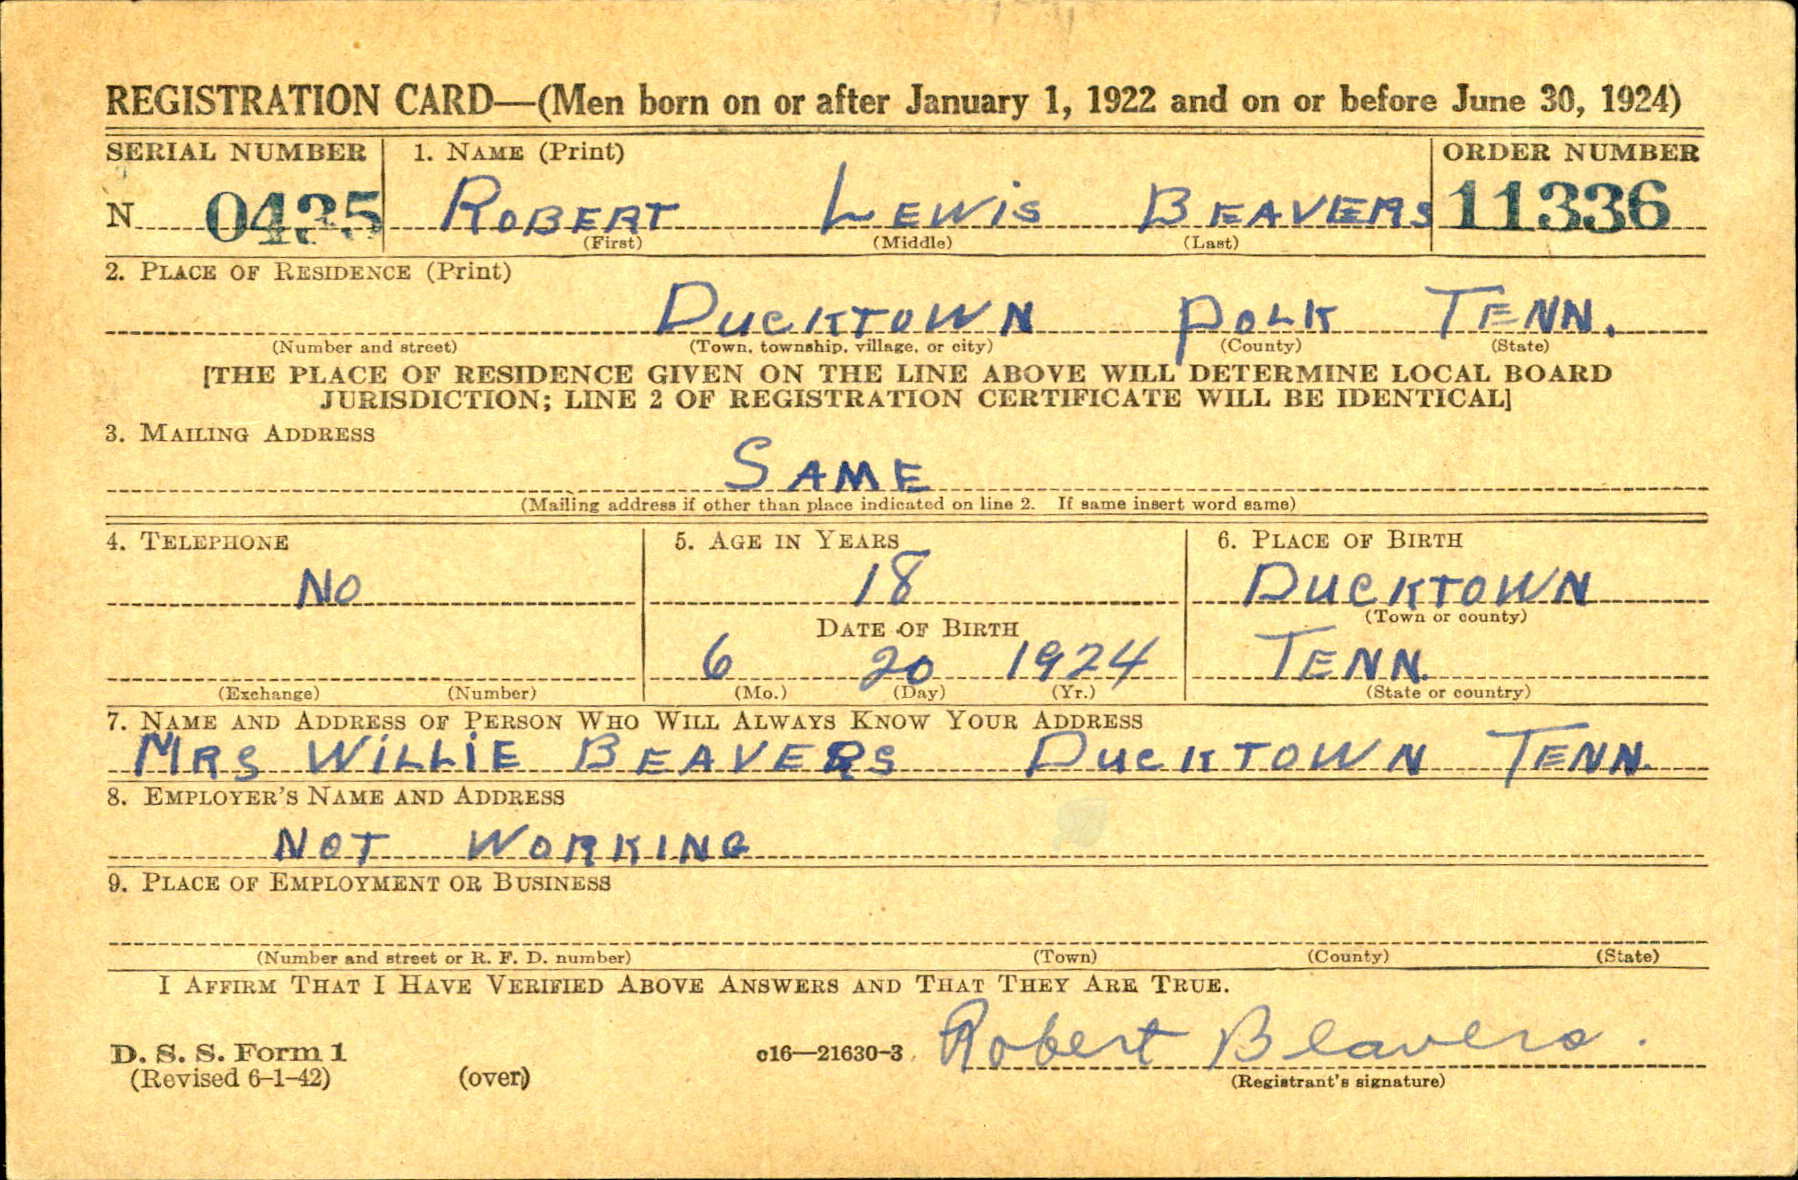 REGISTRATION CARD—(Men born on or after January 1, 1922 and on or before June 30, 1924)
SERIAL NUMBER 1. NAME (Print) ORDER NUMBER
N 0435 ROBERT LEWIS BEAVERS 11336
(First) (Middle) (Last)
2. PLACE OF RESIDENCE (Print)
DUCKTOWN POLK TENN.
(Number and street) (Town, township, village, or city) (County) (State)
[THE PLACE OF RESIDENCE GIVEN ON THE LINE ABOVE WILL DETERMINE LOCAL BOARD
JURISDICTION; LINE 2 OF REGISTRATION CERTIFICATE WILL BE IDENTICAL]
3. MAILING ADDRESS
SAME
(Mailing address if other than place indicated on line 2. If same insert word same)
4. TELEPHONE 5. AGE IN YEARS 6. PLACE OF BIRTH
NO 18 DUCKTOWN
(Town or county)
DATE OF BIRTH
6 20 1924 TENN.
(Exchange) (Number) (Mo.) (Day) (Yr.) (State or country)
7. NAME AND ADDRESS OF PERSON WHO WILL ALWAYS KNOW YOUR ADDRESS
MRS WILLIE BEAVERS DUCKTOWN TENN.
8. EMPLOYER'S NAME AND ADDRESS
NOT WORKING
9. PLACE OF EMPLOYMENT OR BUSINESS
(Number and street or R. F. D. number) (Town) (County) (State)
I AFFIRM THAT I HAVE VERIFIED ABOVE ANSWERS AND THAT THEY ARE TRUE.
D. S. S. Form 1 c16—21630-3 Robert Beavers.
(Revised 6-1-42) (over) (Registrant's signature)